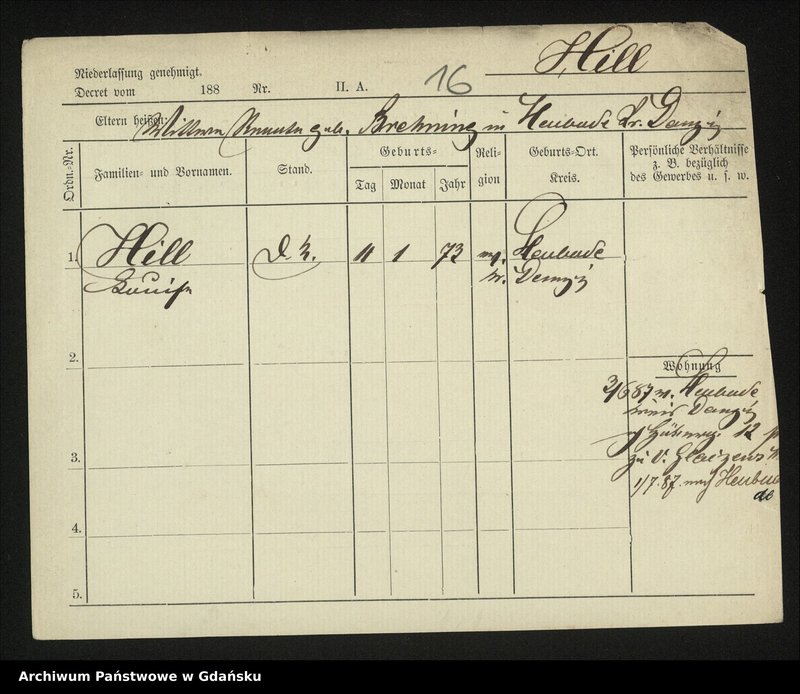 Hill
Niederlassung genehmigt.
Decret vom 188 Nr. II. A. 16
Eltern heißen: Wittwe Renate geb. Brehning in Heubude Kr. Danzig
Ordn.-Nr. Familien- und Vornamen. Stand. Geburts- Tag Monat Jahr Religion Geburts-Ort. Kreis. Persönliche Verhältnisse
z. B. bezüglich
des Gewerbes u. s. w.
1. Hill 11 1 73 Heubude
Louise Kr. Danzig
2.
Wohnung
3/6 87 v. Heubude
Danzig
12
3.
zu v.
1/7. 87. nach Heubu
de
4.
5.
Archiwum Państwowe w Gdańsku